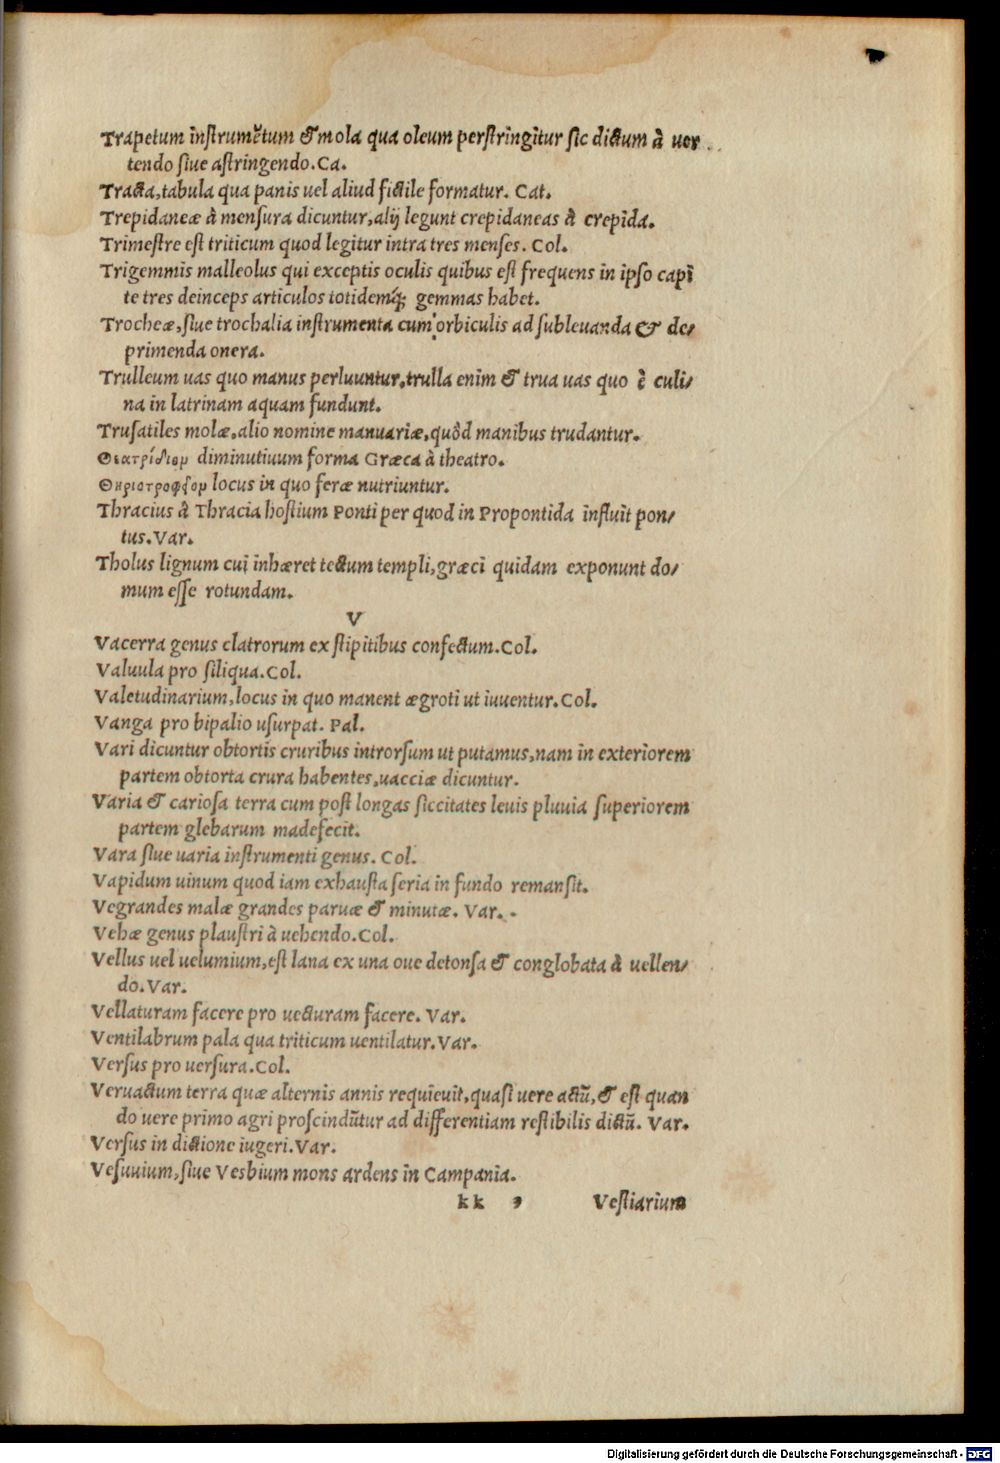 Trapetum instrumẽtum & mola qua oleum perstringitur sic dictum à uer
tendo siue astringendo.Ca.
Tracta,tabula qua panis uel aliud fictile formatur. Cat.
Trepidaneæ à mensura dicuntur,alij legunt crepidaneas à crepida.
Trimestre est triticum quod legitur intra tres menses. Col.
Trigemmis malleolus qui exceptis oculis quibus est frequens in ipso capi
te tres deinceps articulos totidemq́; gemmas habet.
Trocheæ,siue trochalia instrumenta cum orbiculis ad subleuanda & de/
primenda onera.
Trulleum uas quo manus perluuntur,trulla enim & trua uas quo è culi/
na in latrinam aquam fundunt.
Trusatiles molæ,alio nomine manuariæ,quòd manibus trudantur.
Θεατρίδιομ diminutiuum forma Græca à theatro.
Θηριοτροφῖομ locus in quo feræ nutriuntur.
Thracius à Thracia hostium Ponti per quod in Propontida influit pon/
tus.Var.
Tholus lignum cui inhæret tectum templi,græci quidam exponunt do/
mum esse rotundam.
V
Vacerra genus clatrorum ex stipitibus confectum.Col.
Valuula pro siliqua.Col.
Valetudinarium,locus in quo manent ægroti ut iuuentur.Col.
Vanga pro bipalio usurpat. Pal.
Vari dicuntur obtortis cruribus introrsum ut putamus,nam in exteriorem
partem obtorta crura habentes,uacciæ dicuntur.
Varia & cariosa terra cum post longas siccitates leuis pluuia superiorem
partem glebarum madefecit.
Vara siue uaria instrumenti genus. Col.
Vapidum uinum quod iam exhausta seria in fundo remansit.
Vegrandes malæ grandes paruæ & minutæ. Var.
Vehæ genus plaustri à uehendo.Col.
Vellus uel uelumium,est lana ex una oue detonsa & conglobata à uellen/
do.Var.
Vellaturam facere pro uecturam facere. Var.
Ventilabrum pala qua triticum uentilatur.Var.
Versus pro uersura.Col.
Veruactum terra quæ alternis annis requieuit,quasi uere actũ,& est quan
do uere primo agri proscindũtur ad differentiam restibilis dictũ. Var.
Versus in dictione iugeri.Var.
Vesuuium,siue Vesbium mons ardens in Campania.
kk , Vestiarium
Digitalisierung gefördert durch die Deutsche Forschungsgemeinschaft - DFG